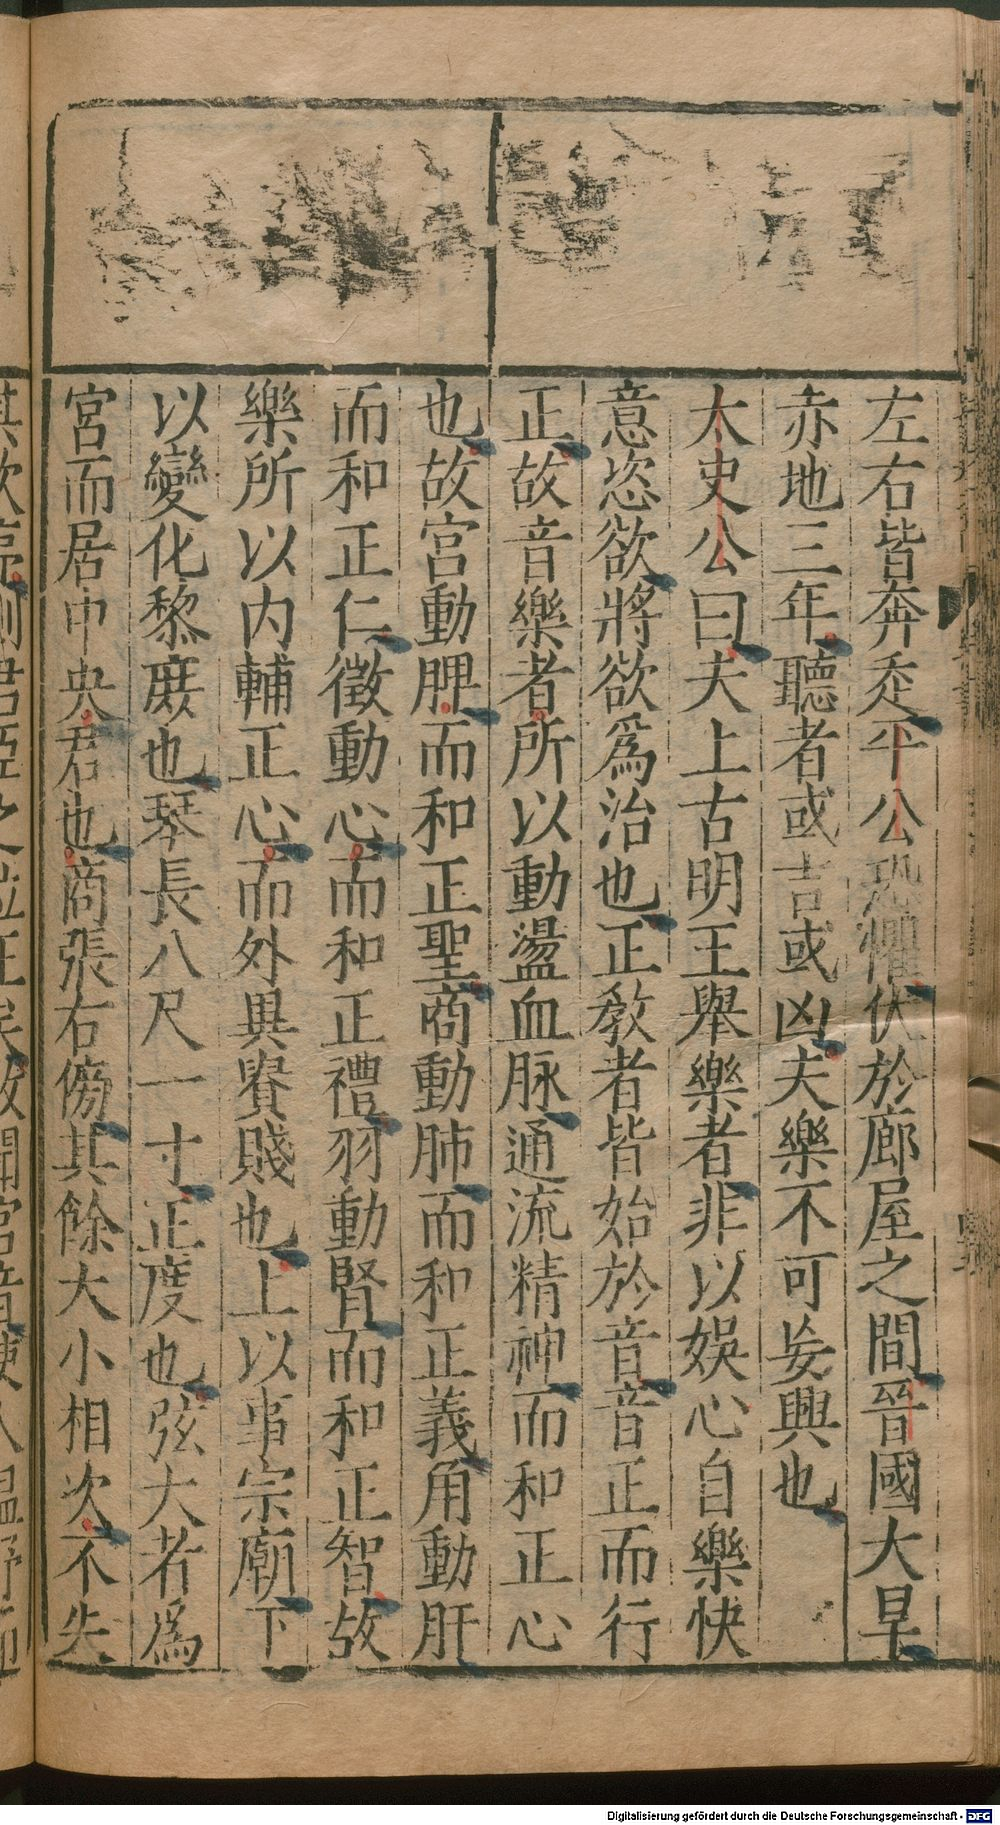 左右皆奔走平公恐懼伏於廊屋之間晉國大旱
赤地三年聽者或吉或凶夫樂不可妄興也
太史公曰夫上古明王舉樂者非以娛心自樂快
意恣欲將欲爲治也正教者皆始於音音正而行
正故音樂者所以動盪血脉通流精神而和正心
也故宮動脾而和正聖商動肺而和正義角動肝
而和正仁徵動心而和正禮羽動腎而和正智故
樂所以内輔正心而外異貴賤也上以事宗廟下
以變化黎庶也琴長八尺一寸正度也弦大者爲
宮而居中央君也商張右傍其餘大小相次不失
Digitalisierung gefördert durch die Deutsche Forschungsgemeinschaft - DFG